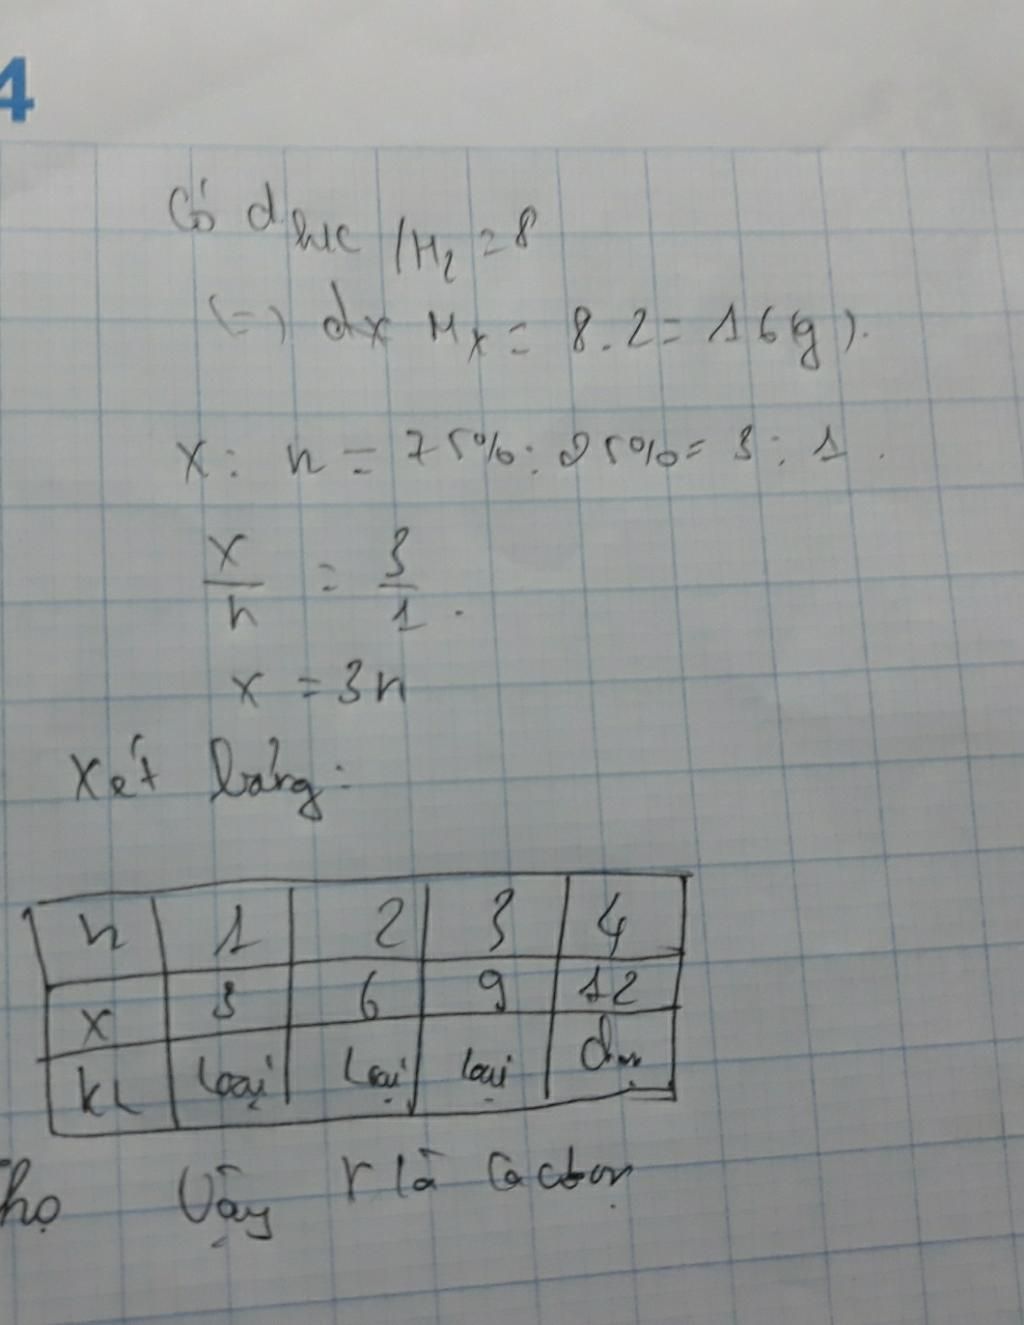 4
Có d hc /H2 = 8
(=) dx Mx = 8.2 = 16(g).
X : h = 75% : 25% = 3 : 1.
x/h = 3/1.
x = 3n
Xét bảng:
n 1 2 3 4
x 3 6 9 12
KL loại loại loại
Vậy r là Cacbon